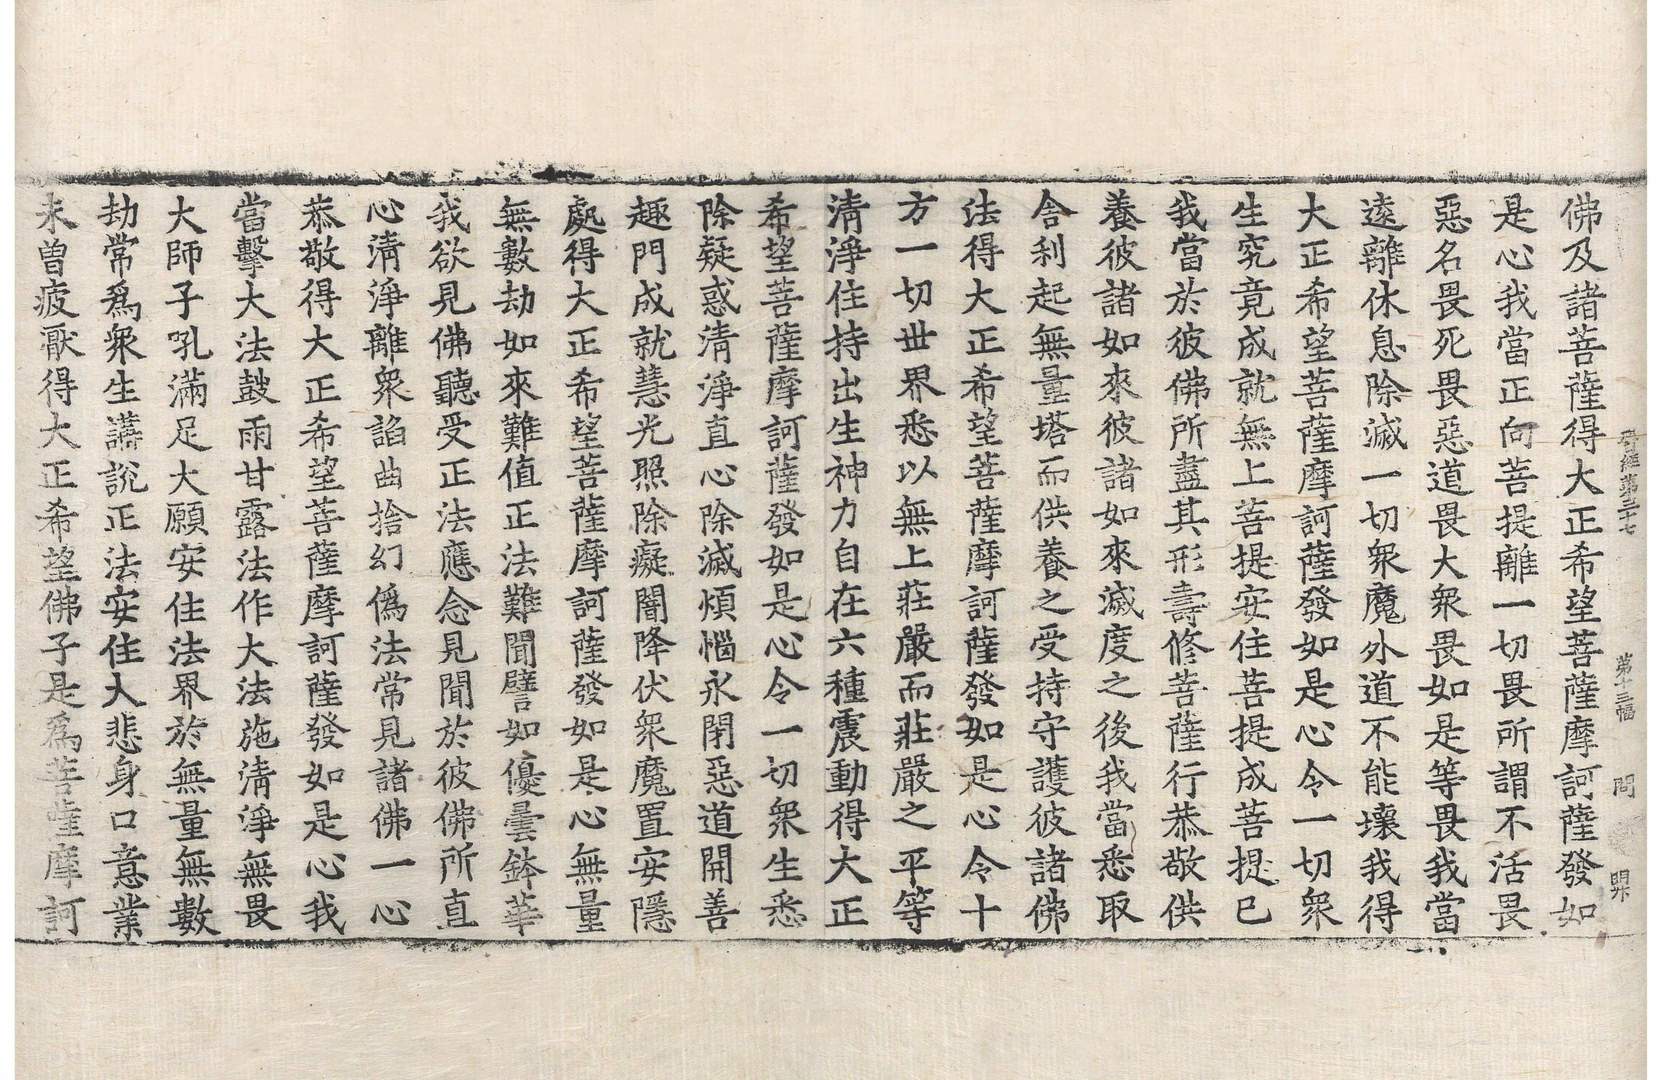 晉經第三十七 第十三幅 問 㒯
佛及諸菩薩得大正希望菩薩摩訶薩發如
是心我當正向菩提離一切畏所謂不活畏
惡名畏死畏惡道畏大衆畏如是等畏我當
遠離休息除滅一切衆魔外道不能壞我得
大正希望菩薩摩訶薩發如是心令一切衆
生究竟成就無上菩提安住菩提成菩提已
我當於彼佛所盡其形壽修菩薩行恭敬供
養彼諸如來彼諸如來滅度之後我當悉取
舍利起無量塔而供養之受持守護彼諸佛
法得大正希望菩薩摩訶薩發如是心令十
方一切世界悉以無上莊嚴而莊嚴之平等
清淨住持出生神力自在六種震動得大正
希望菩薩摩訶薩發如是心令一切衆生悉
除疑惑清淨直心除滅煩惱永閉惡道開善
趣門成就慧光照除癡闇降伏衆魔置安隱
處得大正希望菩薩摩訶薩發如是心無量
無數劫如來難值正法難聞譬如優曇鉢華
我欲見佛聽受正法應念見聞於彼佛所直
心清淨離衆諂曲捨幻僞法常見諸佛一心
恭敬得大正希望菩薩摩訶薩發如是心我
當擊大法鼓雨甘露法作大法施清淨無畏
大師子吼滿足大願安住法界於無量無數
劫常爲衆生講說正法安住大悲身口意業
未曾疲厭得大正希望佛子是爲菩薩摩訶